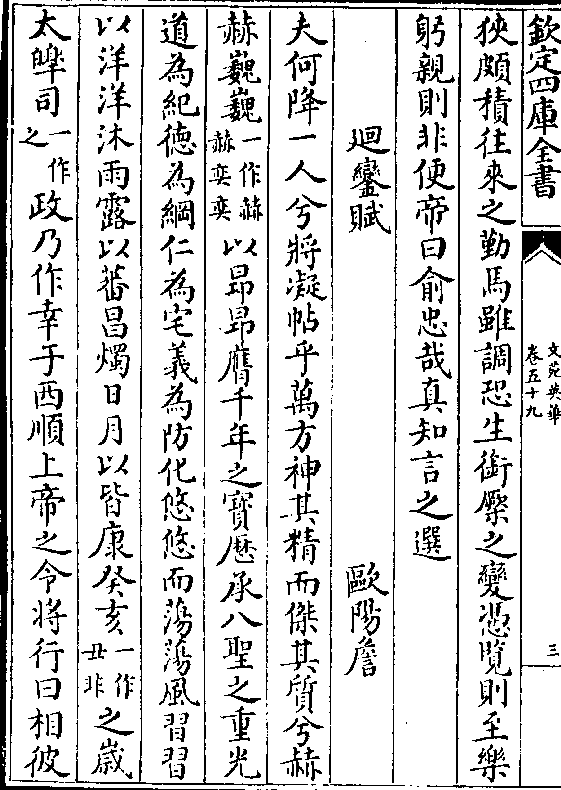 欽定四庫全書
文苑英華
卷五十九
三
狹頗積往來之勤馬雖調恐生銜橜之變憑覽則至樂
躬親則非便帝曰俞忠哉真知言之選
迴鑾賦
歐陽詹
夫何降一人兮將凝帖乎萬方神其精而傑其質兮赫
赫巍巍一作赫赫奕奕以昂昂膺千年之寳厯承八聖之重光
道為紀德為綱仁為宅義為防化悠悠而蕩蕩風習習
以洋洋沐雨露以蕃昌燭日月以皆康癸亥一作丑非之歲
太皞司一作之政乃作幸于西順上帝之令將行曰相彼